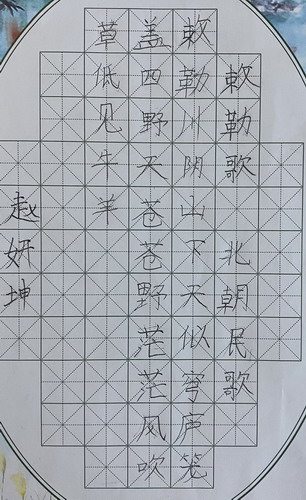 敕勒歌 北朝民歌
敕勒川阴山下天似穹庐笼
盖四野天苍苍野茫茫风吹
草低见牛羊
赵妍坤